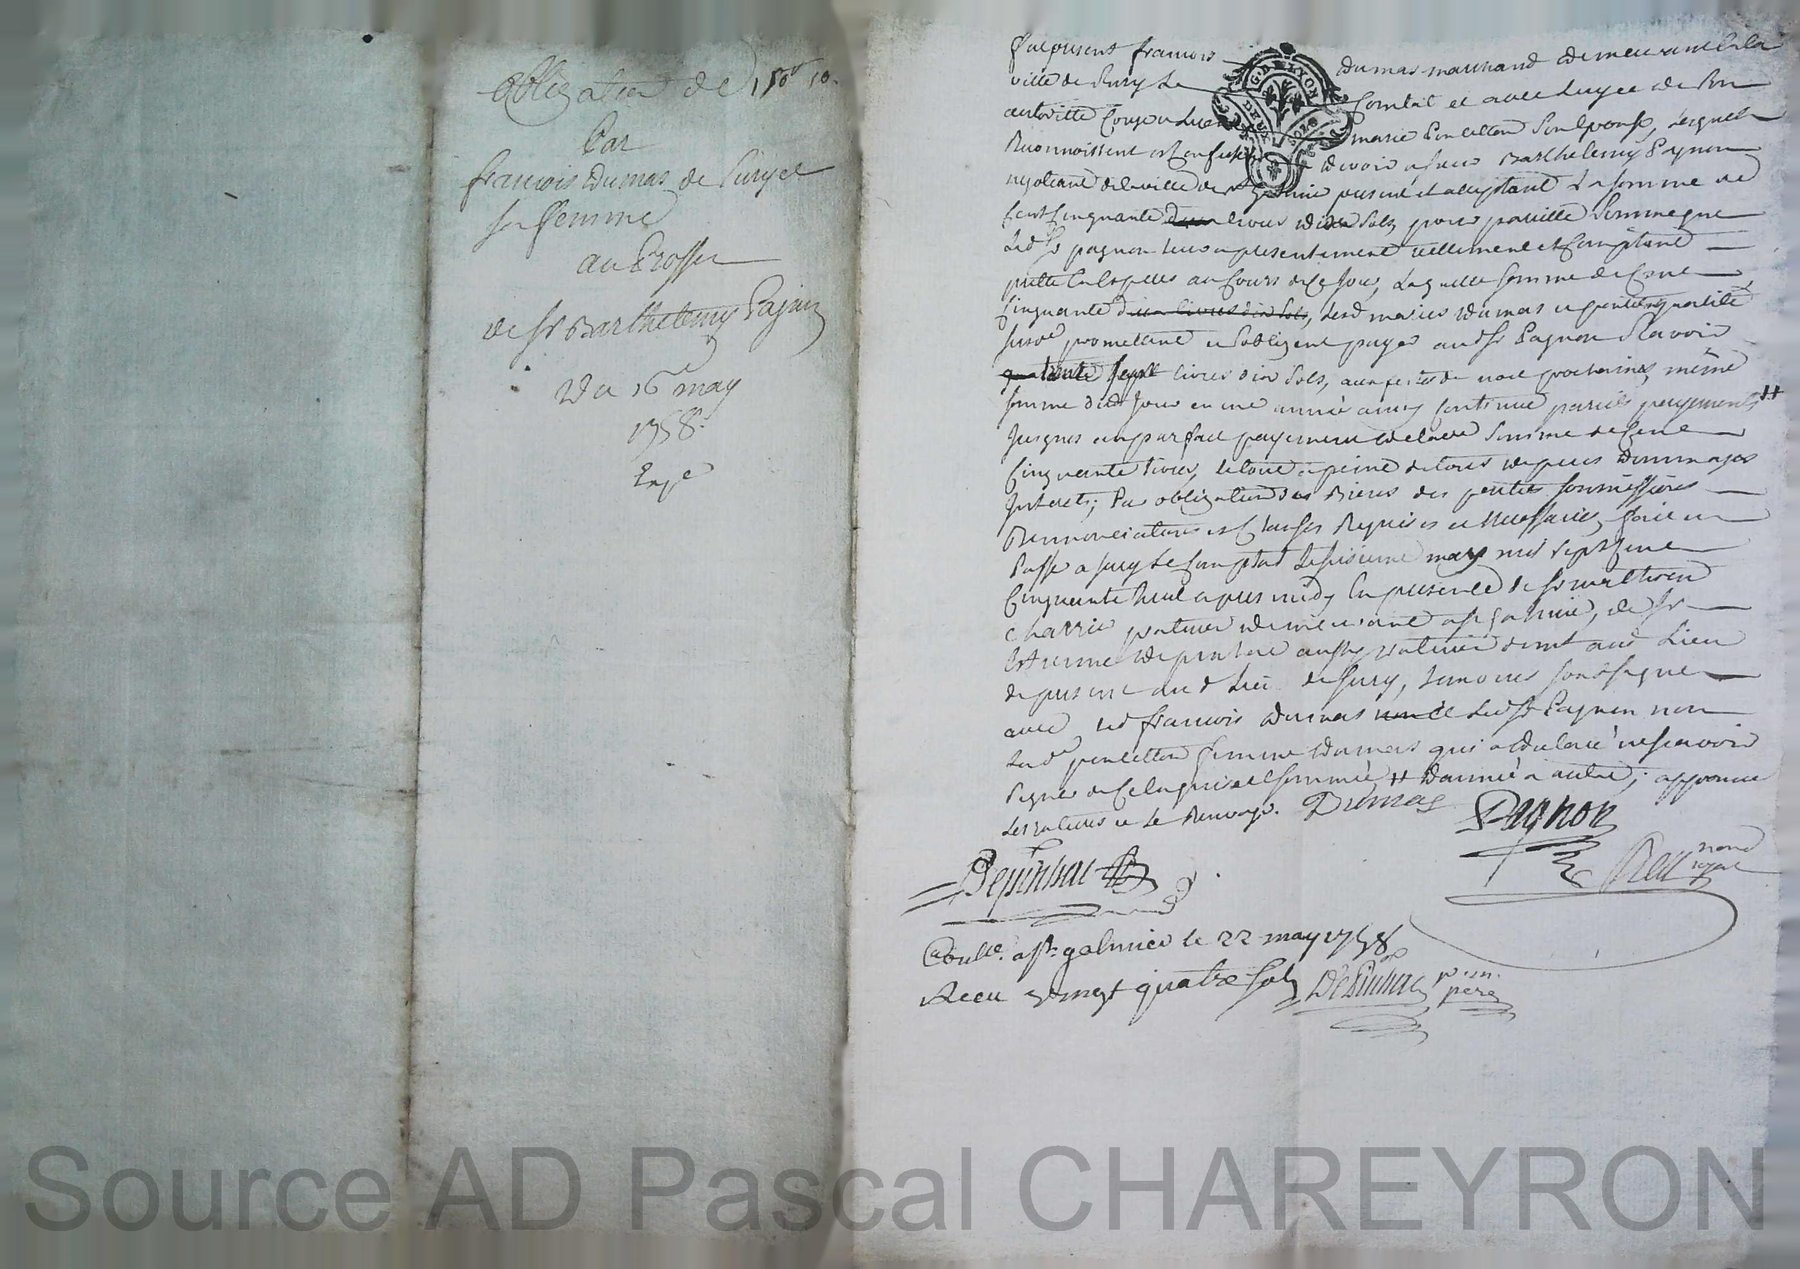 obligation de 150# 10s
Par
francois Dumas de Sury et
sa femme
au Proffit
de sr Barthelemy Pagnon
Du 16e may
1758.
Exp.e
fut present francois Dumas marchand demeurant à la
ville de Sury le Comtal et avec luy et de son
autorité marie Poncetton son epouse, lesquels
Reconnoissent et Confessent devoir a sieur Barthelemy Pagnon
negotiant de la ville de st galmie present et acceptant la somme de
Cent Cinquante livres dix sols, pour pareille somme que
led. sr pagnon leur a presentement reellement et Comptant
prêté en Especes au Cours de Ce Jour, Laquelle somme de Cent
Cinquante dix livres dix sols, lesd. mariés Dumas et
promettent et s'obligent payer aud. sr Pagnon sçavoir
livres dix sols, aux festes de noel prochaines, même
somme dud. Jour en une année ainsy Continuer pareils payements #
Jusques au parfait payement de lade somme de Cent
Cinquante livres, le tout a peine de tous depens Dommages
Interets; Par obligation des Biens des parties soumissions
Rennonciations et Clauses Requises et necessaires, fait et
Passé a sury le Comptal le seizieme may mil sept Cent
Cinquante huit apres midy En presence de sr mathieu
Charrie praticien demeurant a st galmie, de sr
Estienne aussy praticien dud. Lieu
de present aud. Lieu de Sury, temoins sousignes
avec led francois Dumas led. sr Pagnon non
lad.e poncetton femme Dumas qui a declaré ne sçavoir
signer de Ce enquise et sommée # D'année a autre; approuvé
les ratures et le Renvoy. Dumas Pagnon
Depinhac Real notre royal
Conll.e a st. galmier le 22 may 1758
Recu vingt quatre sols Depinhac p. m. pere
G. DE LYON
DEUX SOLS
Source AD Pascal CHAREYRON